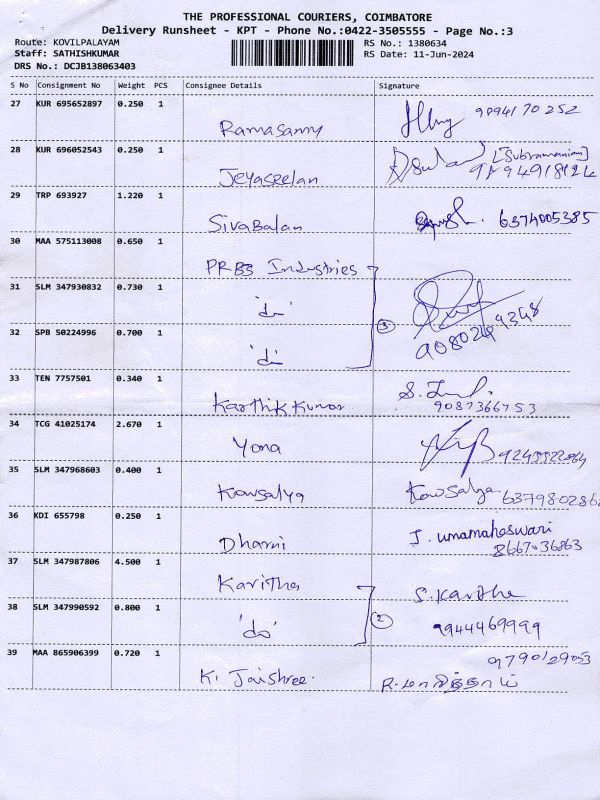 THE PROFESSIONAL COURIERS, COIMBATORE
Delivery Runsheet - KPT - Phone No.:0422-3505555 - Page No.:3
Route: KOVILPALAYAM RS No.: 1380634
Staff: SATHISHKUMAR RS Date: 11-Jun-2024
DRS No.: DCJB138063403
S No Consignment No Weight PCS Consignee Details Signature
27 KUR 695652897 0.250 1
Ramasamy 9094170252
28 KUR 696052543 0.250 1
Jeyaseelan [Subramanian]
29 TRP 693927 1.220 1
Sivabalan 6374005385
30 MAA 575113008 0.650 1
PRBS Industries
31 SLM 347930832 0.730 1
'do'
32 SPB 50224996 0.700 1
'do' 3
33 TEN 7757501 0.340 1
Karthik Kumar
9087366753
34 TCG 41025174 2.670 1
Yona
35 SLM 347968603 0.400 1
Kowsalya Kowsalya 637980286
36 KDI 655798 0.250 1
Dharni J. umamaheswari
8667036863
37 SLM 347987806 4.500 1
Karitha S. Karitha
38 SLM 347990592 0.800 1
'do' 2 9944469999
39 MAA 865906399 0.720 1
9790129053
K. Jaishree.